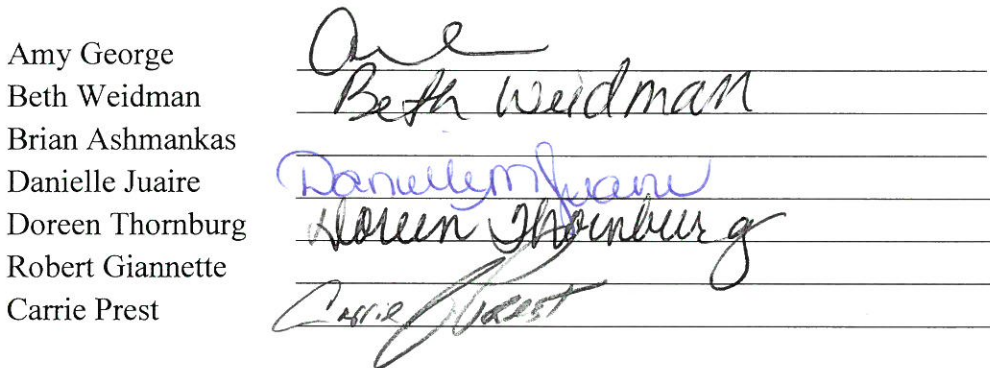 Amy George
Beth Weidman Beth Weidman
Brian Ashmankas
Danielle Juaire Danielle M Juaire
Doreen Thornburg Doreen Thornburg
Robert Giannette
Carrie Prest Carrie Prest